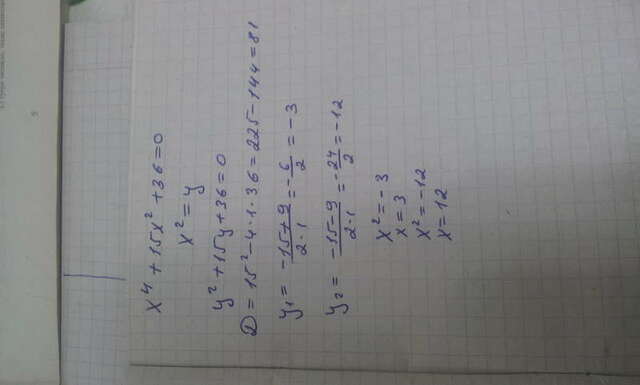 x⁴ + 15x² + 36 = 0
x² = y
y² + 15y + 36 = 0
D = 15² - 4·1·36 = 225 - 144 = 81
y₁ = (-15+9)/(2·1) = -6/2 = -3
y₂ = (-15-9)/(2·1) = -24/2 = -12
x² = -3
x = 3
x² = -12
x = 12